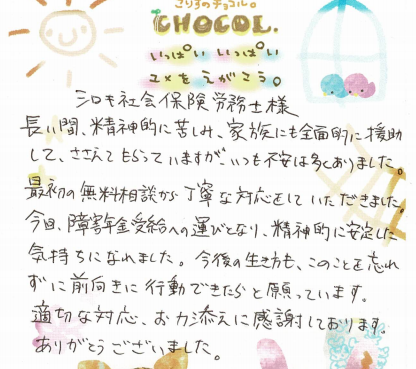 こりすのチョコル。
CHOCOL.
いっぱい いっぱい
ユメを えがこう。
シロキ社会保険労務士様
長い間、精神的に苦しみ、家族にも全面的に援助
して、ささえてもらっていますが、いつも不安は多くありました。
最初の無料相談から丁寧な対応をしていただきました。
今回、障害年金受給への運びとなり、精神的に安定した
気持ちになれました。今後の生き方も、このことを忘れ
ずに前向きに行動できたらと願っています。
適切な対応、お力添えに感謝しております。
ありがとうございました。